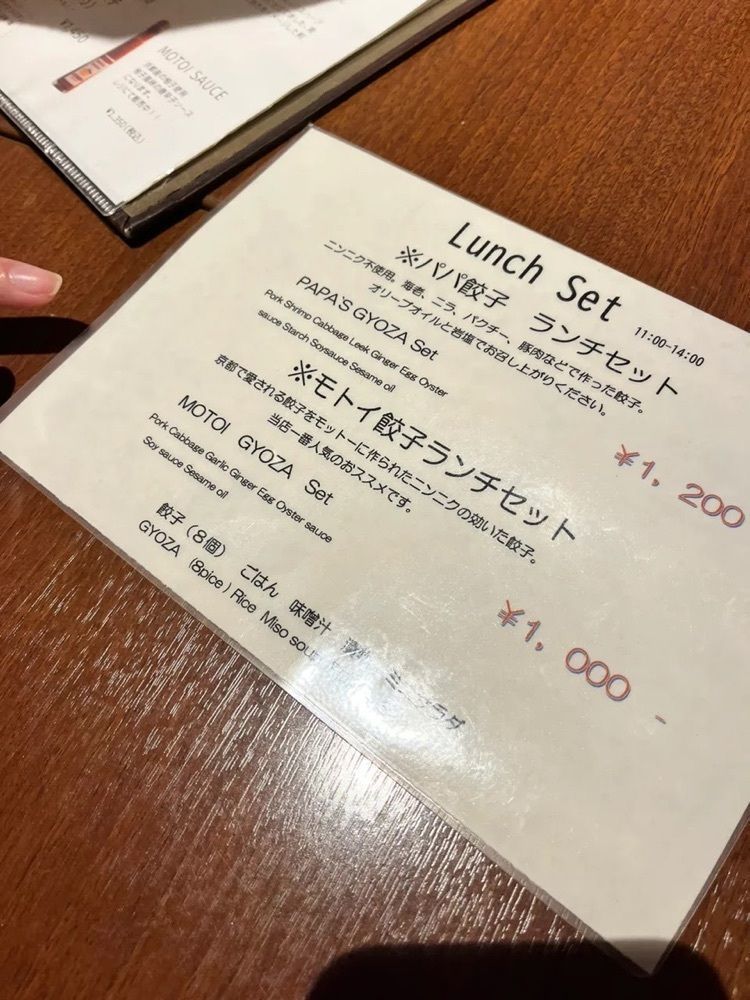 ¥1,350(税込)
MOTOI SAUCE
Lunch Set 11:00-14:00
※パパ餃子 ランチセット
ニンニク不使用。海老、ニラ、パクチー、豚肉などで作った餃子。
オリーブオイルと岩塩でお召し上がりください。
PAPA'S GYOZA Set
Pork Shrimp Cabbage Leek Ginger Egg Oyster
sauce Starch Soysauce Sesame oil
¥1,200
※モトイ餃子ランチセット
京都で愛される餃子をモットーに作られたニンニクの効いた餃子。
当店一番人気のおススメです。
MOTOI GYOZA Set
Pork Cabbage Garlic Ginger Egg Oyster sauce
Soy sauce Sesame oil
¥1,000-
餃子(8個) ごはん 味噌汁 ミニサラダ
GYOZA (8pice) Rice Miso soup